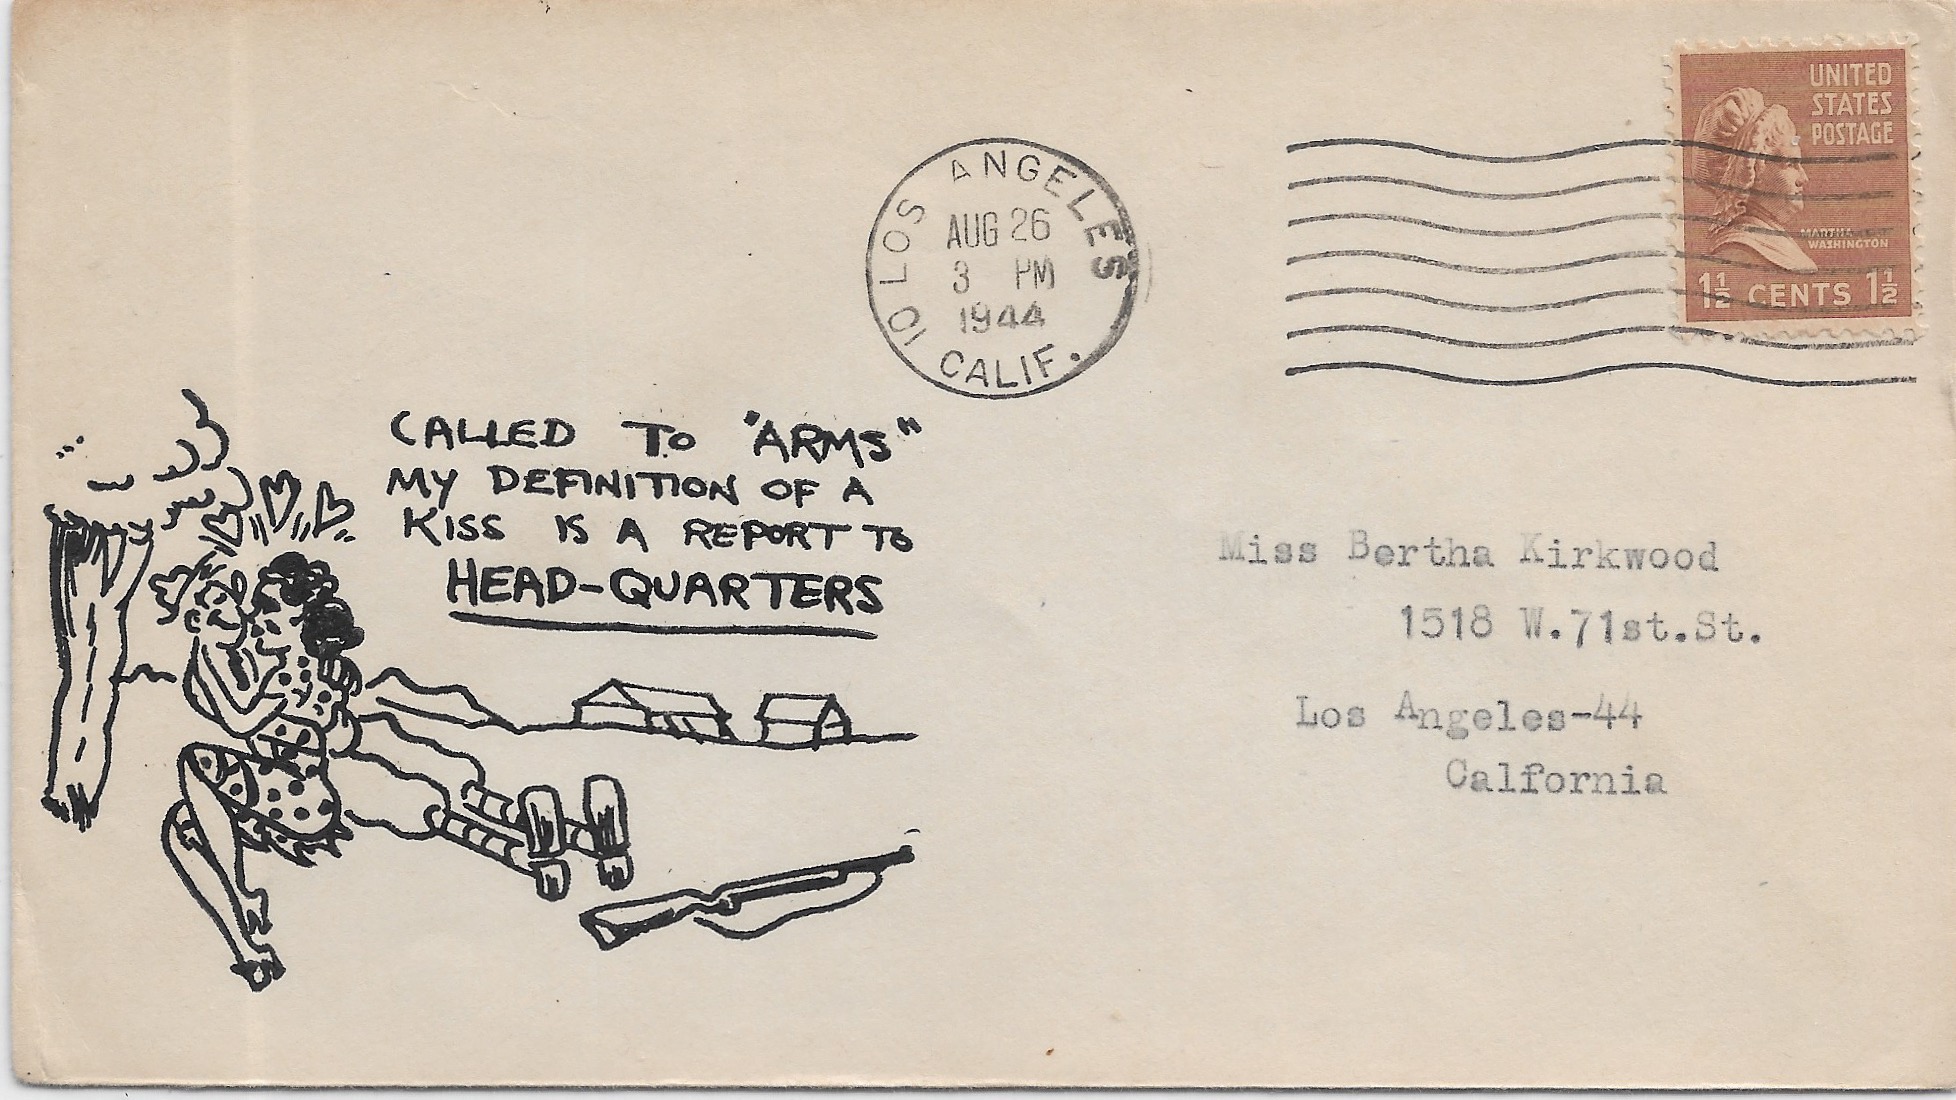 UNITED
STATES
POSTAGE
MARTHA
WASHINGTON
1½ CENTS 1½
LOS ANGELES
10
AUG 26
3 PM
1944
CALIF.
CALLED TO "ARMS"
MY DEFINITION OF A
KISS IS A REPORT TO
HEAD-QUARTERS
Miss Bertha Kirkwood
1518 W.71st.St.
Los Angeles-44
Calfornia